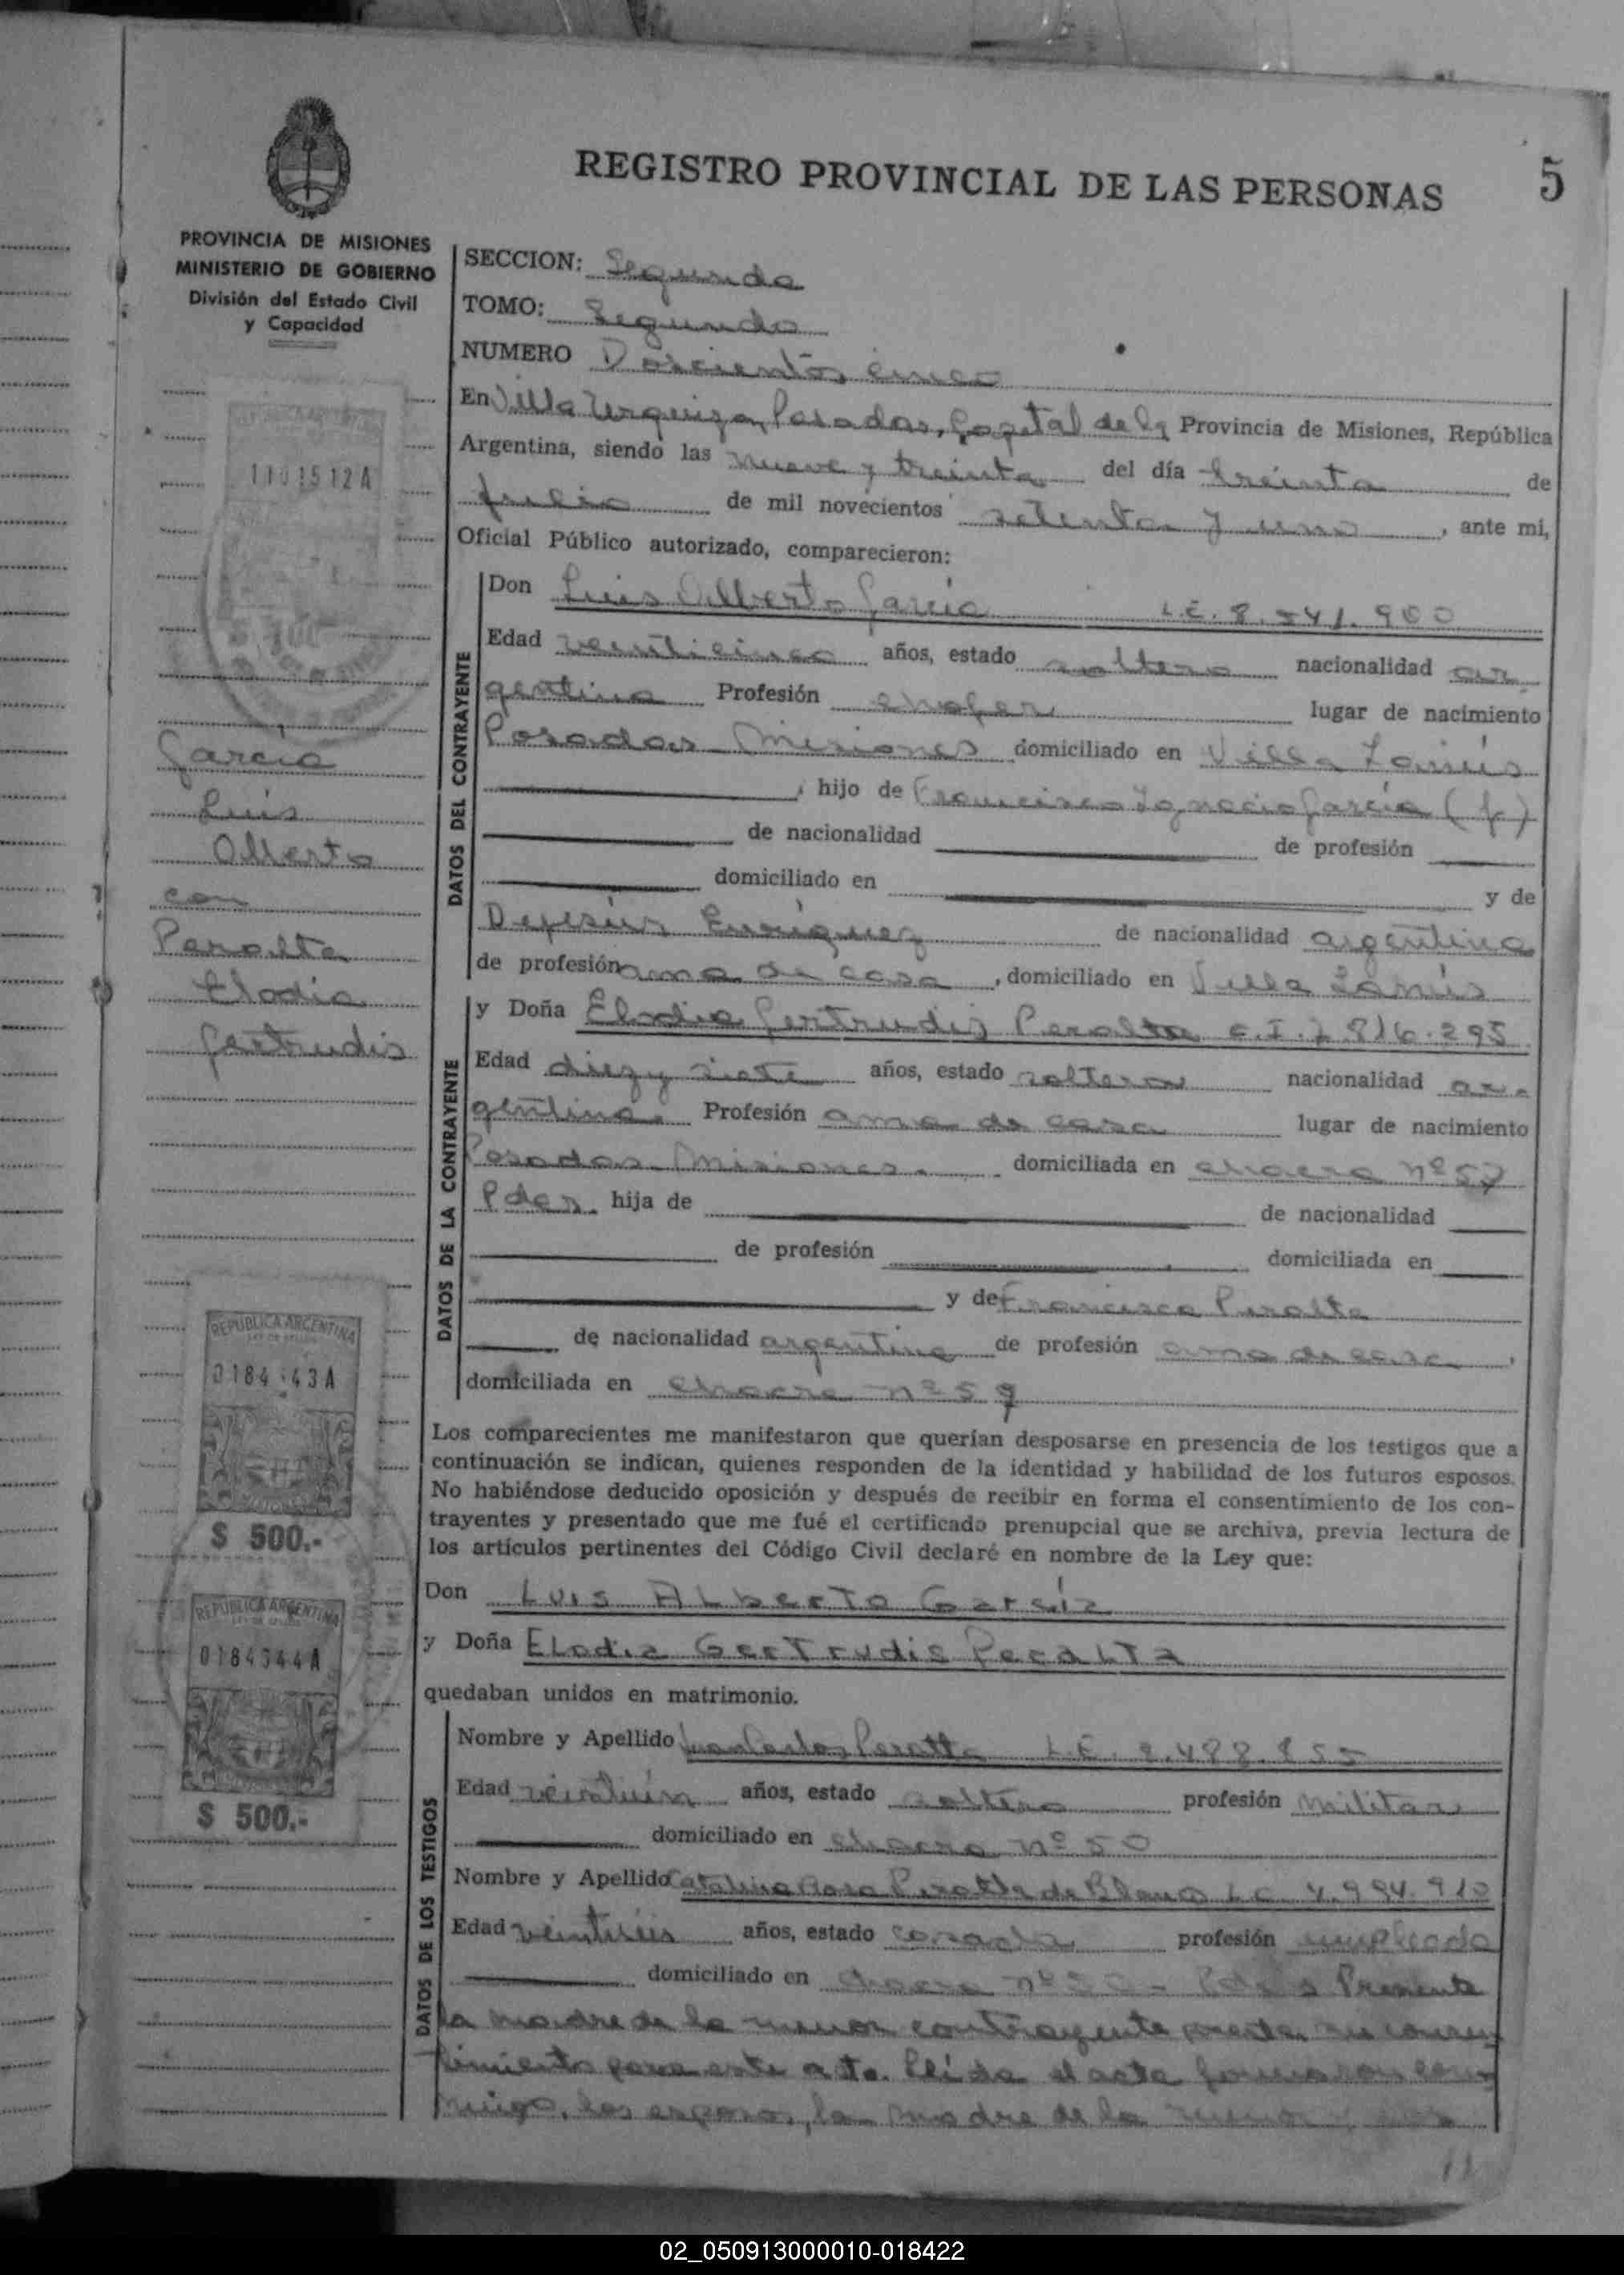 REGISTRO PROVINCIAL DE LAS PERSONAS
5
PROVINCIA DE MISIONES
MINISTERIO DE GOBIERNO
División del Estado Civil
y Capacidad
SECCION: Segunda
TOMO: Segundo
NUMERO Doscientos cinco
En Villa Urquiza, Posadas, Capital de la Provincia de Misiones, República
Argentina, siendo las nueve y treinta del día treinta de
julio de mil novecientos setenta y uno, ante mi,
Oficial Público autorizado, comparecieron:
DATOS DEL CONTRAYENTE
Don Luis Alberto García L.E. 8.541.900
Edad veinticinco años, estado soltero nacionalidad ar
gentina Profesión chofer lugar de nacimiento
Posadas Misiones domiciliado en Villa Lanús
, hijo de Francisco Ignacio García (f)
de nacionalidad de profesión
domiciliado en y de
Dejesús Enríquez de nacionalidad argentina
de profesión ama de casa, domiciliado en Villa Lanús
DATOS DE LA CONTRAYENTE
y Doña Elodia Gertrudis Peralta C.I. 816.295
Edad diez y siete años, estado soltera nacionalidad ar-
gentina. Profesión ama de casa lugar de nacimiento
Posadas Misiones. domiciliada en chacra nº 57
Pdas. hija de de nacionalidad
de profesión domiciliada en
y de Francisca Peralta
de nacionalidad argentina de profesión ama de casa,
domiciliada en chacra nº 57
Los comparecientes me manifestaron que querían desposarse en presencia de los testigos que a
continuación se indican, quienes responden de la identidad y habilidad de los futuros esposos.
No habiéndose deducido oposición y después de recibir en forma el consentimiento de los con-
trayentes y presentado que me fué el certificado prenupcial que se archiva, previa lectura de
los artículos pertinentes del Código Civil declaré en nombre de la Ley que:
Don Luis Alberto García
y Doña Elodia Gertrudis Peralta
quedaban unidos en matrimonio.
DATOS DE LOS TESTIGOS
Nombre y Apellido Juan Carlos Peralta L.E. 8.488.855
Edad veintiún años, estado soltero profesión militar
domiciliado en chacra nº 50
Nombre y Apellido Catalina Rosa Peralta de Blanco L.C. 4.994.910
Edad veintiséis años, estado casada profesión empleada
domiciliado en chacra nº 50 - Pdas Presente
la madre de la menor contrayente presta su consen
timiento para este acto. Leída el acta firmaron con
migo, los esposos, la madre de la menor y los
1101512A
García
Luis
Alberto
con
Peralta
Elodia
Gertrudis
REPUBLICA ARGENTINA
$ 500.-
REPUBLICA ARGENTINA
0184344A
$ 500.-
02_050913000010-018422